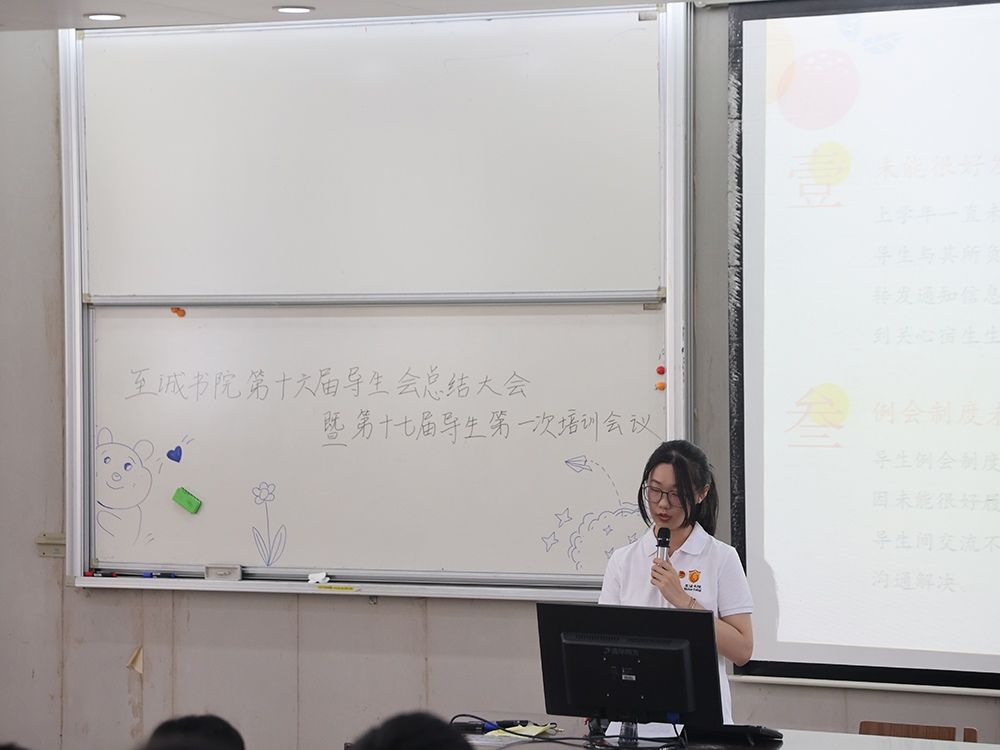 至诚书院第十六届导生会总结大会
暨第十七届导生第一次培训会议
壹
未能很好发
上学年一直未
导生与其所负
转发通知信息
到关心宿生生
叁
例会制度未
导生例会制度
因未能很好履
导生间交流不
沟通解决。